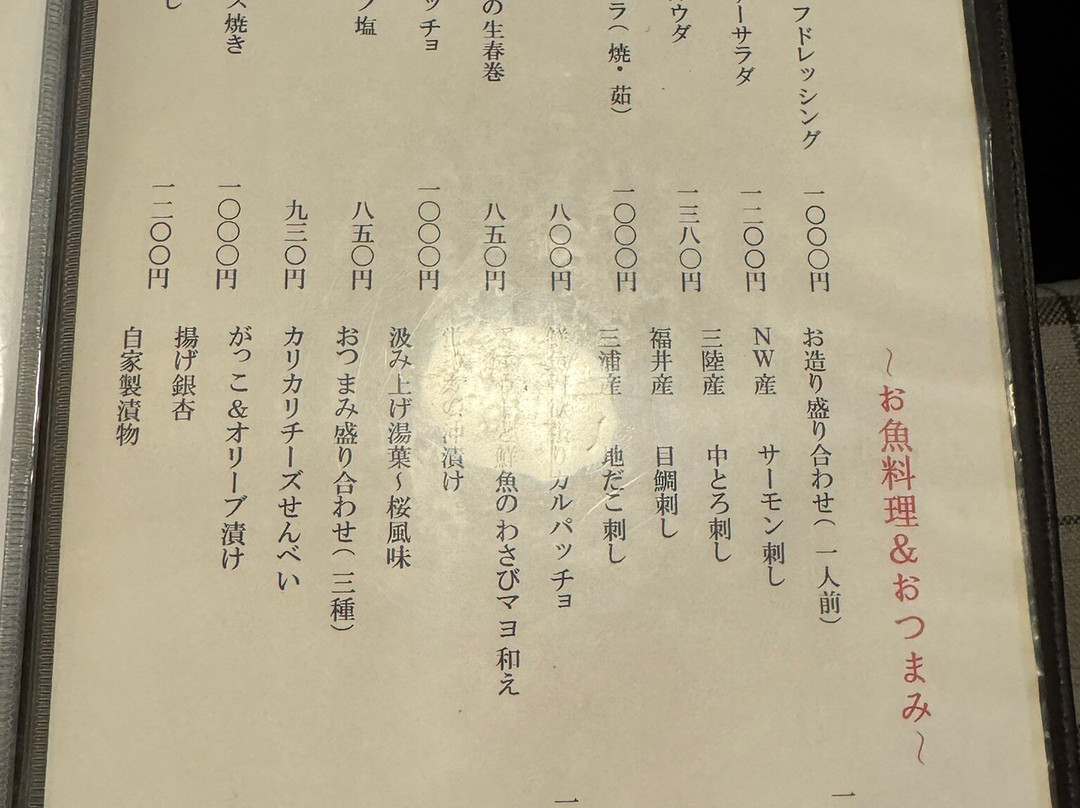 フドレッシング
一〇〇〇円
ーサラダ
一二〇〇円
ウダ
一三八〇円
ラ（焼・茹）
一〇〇〇円
八〇〇円
の生春巻
八五〇円
ッチョ
一〇〇〇円
塩
八五〇円
九三〇円
ス焼き
一〇〇〇円
し
一二〇〇円
〜お魚料理＆おつまみ〜
お造り盛り合わせ（一人前）
NW産 サーモン刺し
三陸産 中とろ刺し
福井産 目鯛刺し
三浦産 地だこ刺し
カルパッチョ
鮮魚のわさびマヨ和え
沖漬け
汲み上げ湯葉〜桜風味
おつまみ盛り合わせ（三種）
カリカリチーズせんべい
がっこ＆オリーブ漬け
揚げ銀杏
自家製漬物